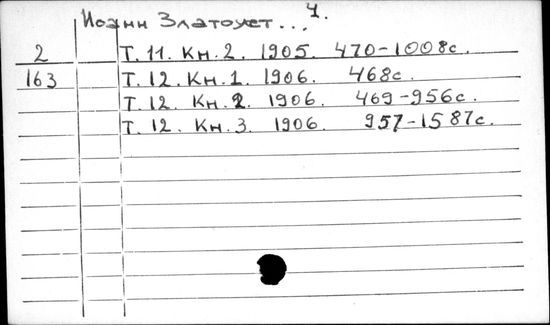 Иоанн Златоуст... 4.
2 Т. 11. Кн. 2. 1905. 470-1008с.
163 Т. 12. Кн. 1. 1906. 468с.
Т. 12. Кн. 2. 1906. 469-956с.
Т. 12. Кн. 3. 1906. 957-1587с.